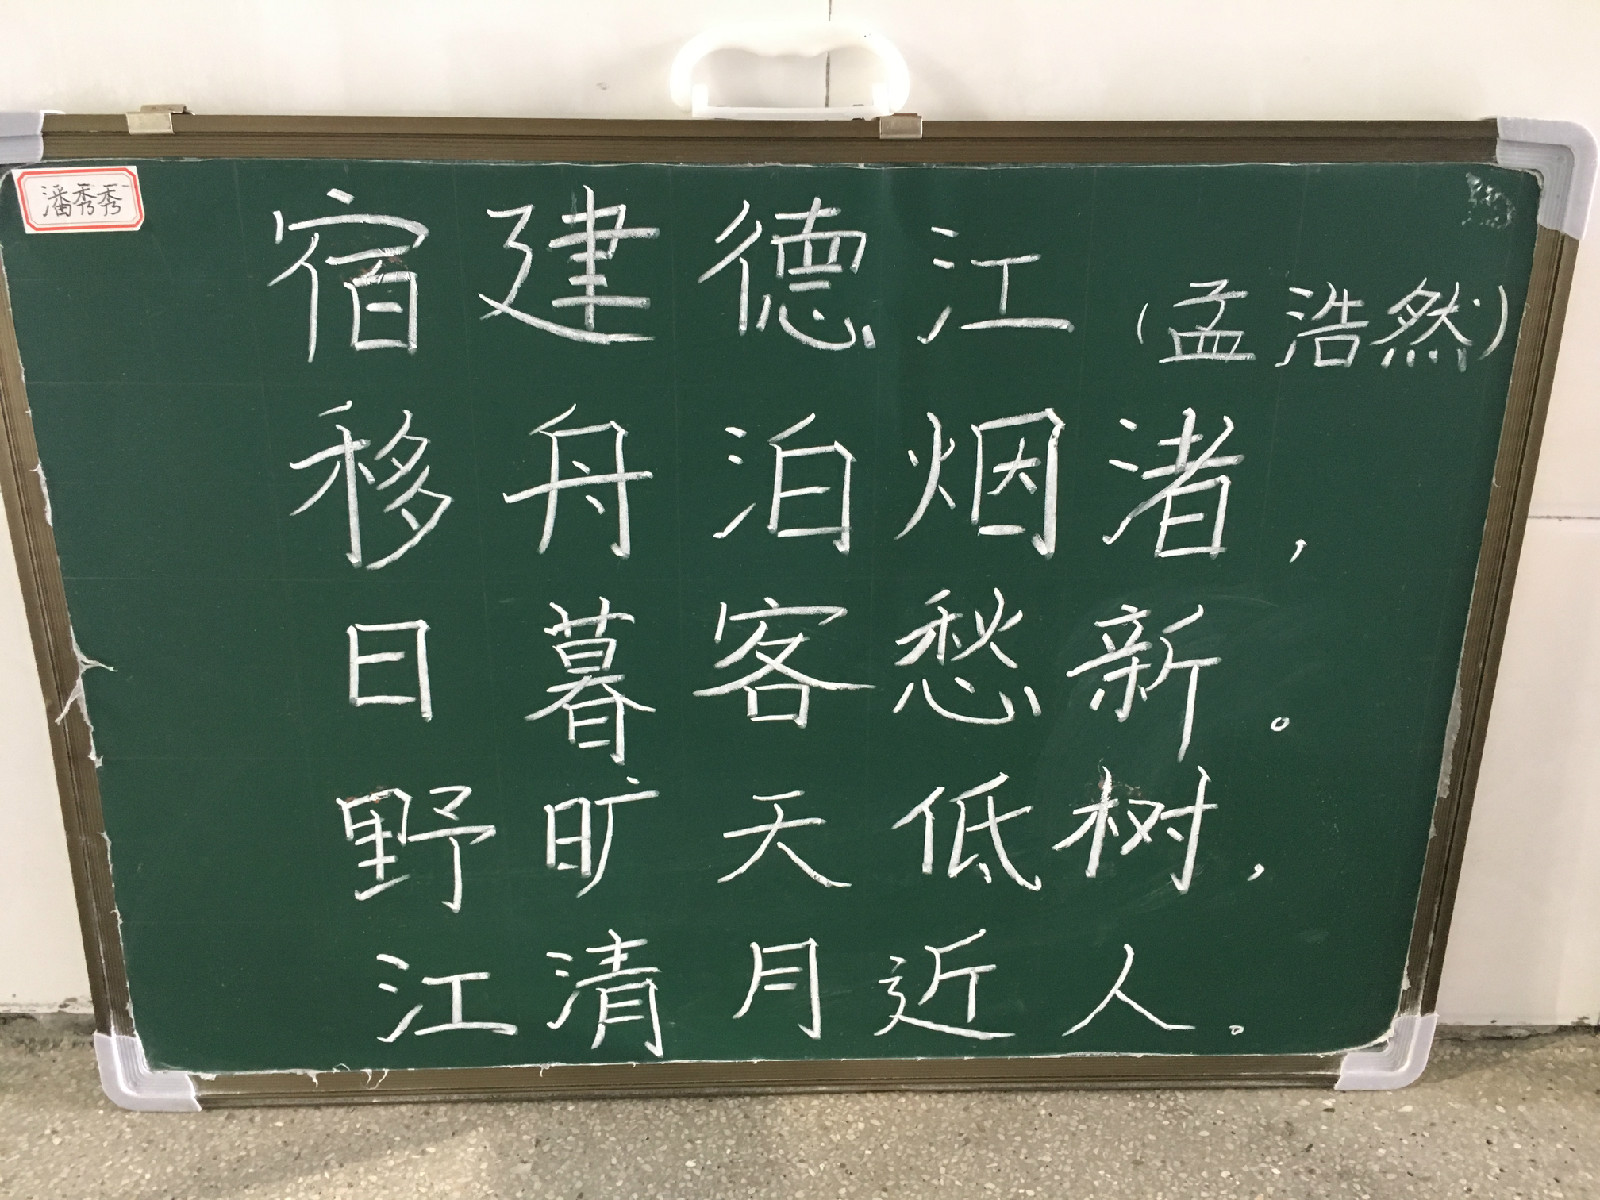 潘秀秀
宿建德江 (孟浩然)
移舟泊烟渚,
日暮客愁新。
野旷天低树,
江清月近人。